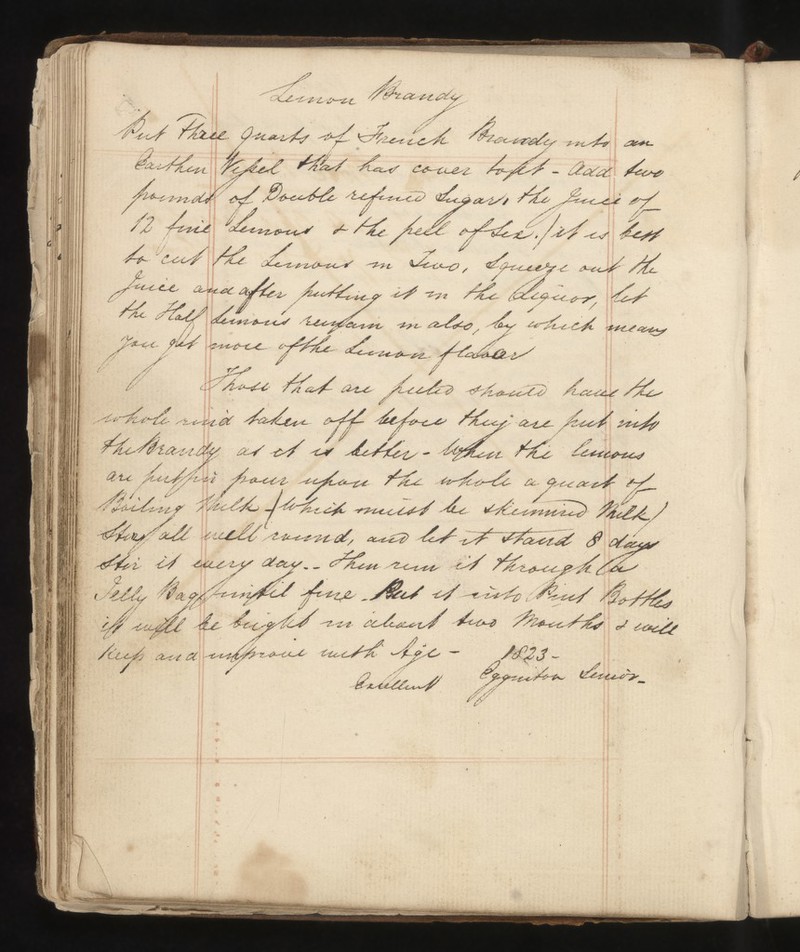 Lemon Brandy
Put Three quarts of French Brandy into an
Earthen Vessel that has cover to it - add two
pounds of Double refined Sugar, the Juice of
12 fine Lemons & the peel of Six. / it is best
to cut the Lemons in Two, Squeeze out the
Juice and after putting it in the Liquor, let
the Half Lemons remain in also, by which means
you get more of the Lemon flavor
Those that are peeled should have the
whole rind taken off before they are put into
the Brandy as it is better - When the lemons
are put in pour upon the whole a quart of
Boiling Milk - (which must be skimmed Milk)
Stir all well round, and let it stand 8 days
Stir it every day -- Then run it through a
Jelly Bag until fine - Put it into Pint Bottles
it will be bright in about two Months & will
keep and improve with Age - 1823 -
Excellent Senior -